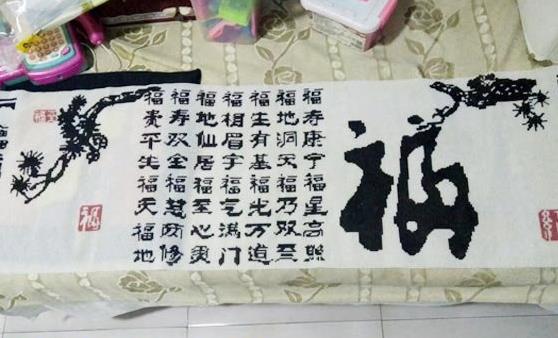 福
福寿康宁福星高照
福地洞天福乃双至
福生有基福光万道
福相眉宇福气满门
福地仙居福至心灵
福寿双全福慧两修
福贵平安福天福地
福